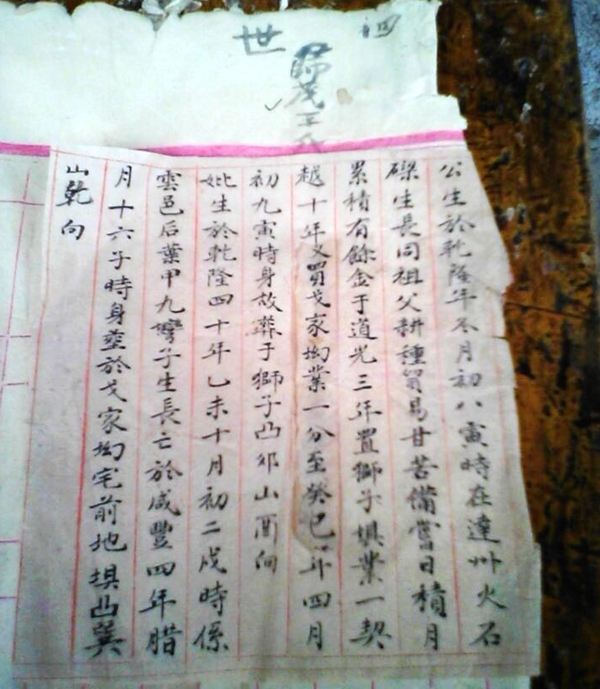 四世
歸茂王氏
公生於乾隆年冬月初八寅時在達州火石
磔生長同祖父耕種貿易甘苦備嘗日積月
累積有餘金于道光三年置獅子埧業一契
越十年又買戈家坳業一分至癸巳年四月
初九寅時身故葬于獅子凸卯山酉向
妣生於乾隆四十年乙未十月初二戌時係
雲邑后葉甲九灣子生長亡於咸豐四年腊
月十六子時身塋於戈家坳宅前地埧凸巽
山乾向